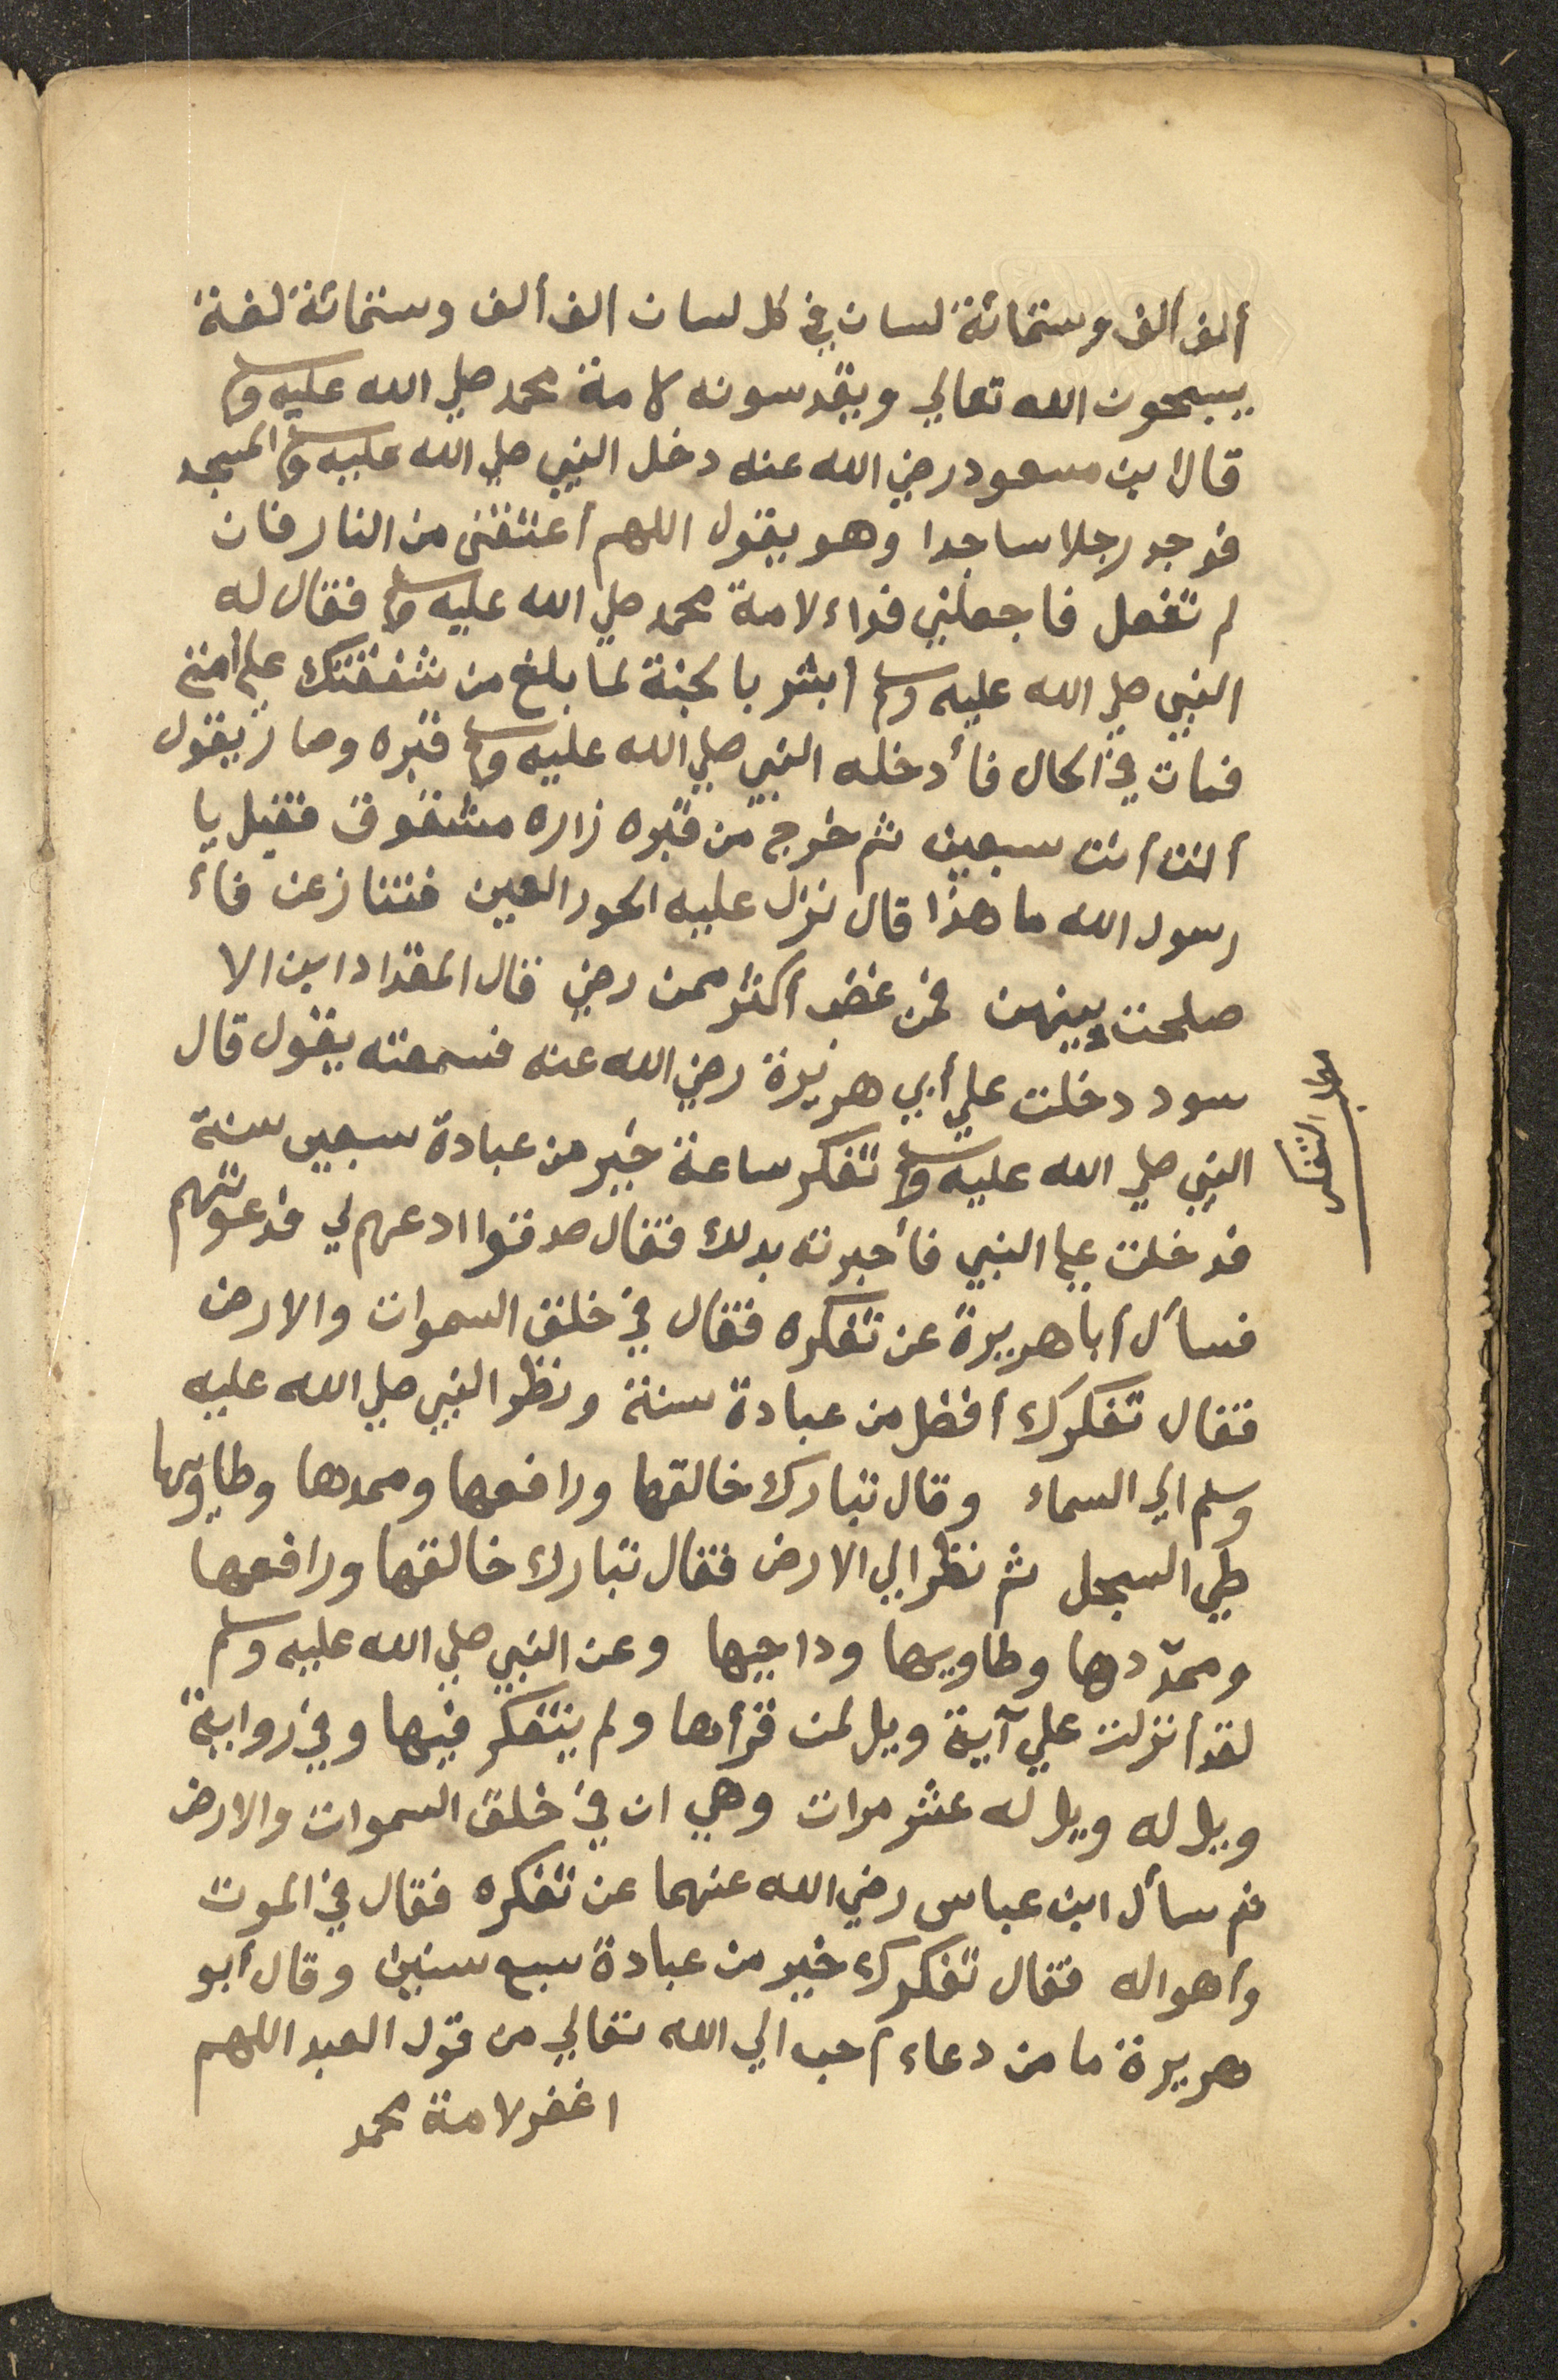 ألف ألف وستمائة لسان في كل لسان الف ألف وستمائة لغة
يسبحون الله تعالي ويقدسونه لامة محمد صلي الله عليه وسلم
قال ابن مسعود رضي الله عنه دخل النبي صلي الله عليه وسلم المسجد
فوجد رجلا ساجدا وهو يقول اللهم أعتقني من النار فان
لم تفعل فاجعلني فداء لامة محمد صلي الله عليه وسلم فقال له
النبي صلي الله عليه وسلم أبشر بالجنة لما بلغ من شفقتك علي أمتي
فمات في الحال فأدخله النبي صلي الله عليه وسلم قبره وصار يقول
أنت أنت سبعين ثم خرج من قبره زاره مشقوق فقيل يا
رسول الله ما هذا قال نزل عليه الحور العين فتنازعن فأ
صلحت بينهن فمن غضب أكثر ممن رضي قال المقداد ابن الا
سود دخلت علي أبي هريرة رضي الله عنه فسمعته يقول قال
النبي صلي الله عليه وسلم تفكر ساعة خير من عبادة سبعين سنة
فدخلت علي النبي فأخبرته بدلك فقال صدقوا ادعهم لي فدعوتهم
فسأل أبا هريرة عن تفكره فقال في خلق السموات والارض
فقال تفكرك أفضل من عبادة سنة ونظر النبي صلي الله عليه
وسلم الي السماء وقال تبارك خالقها ورافعها وممدها وطاويها
طي السجل ثم نظر الي الارض فقال تبارك خالقها ورافعها
وممدّدها وطاويها وداحيها وعن النبي صلي الله عليه وسلم
لقد أنزلت علي آية ويل لمن قرأها ولم يتفكر فيها وفي رواية
ويل له ويل له عشر مرات وهي ان في خلق السموات والارض
ثم سأل ابن عباس رضي الله عنهما عن تفكره فقال في الموت
وأهواله فقال تفكرك خير من عبادة سبع سنين وقال أبو
هريرة ما من دعاء أحب الي الله تعالي من قول العبد اللهم
اغفر لامة محمد
التفكر